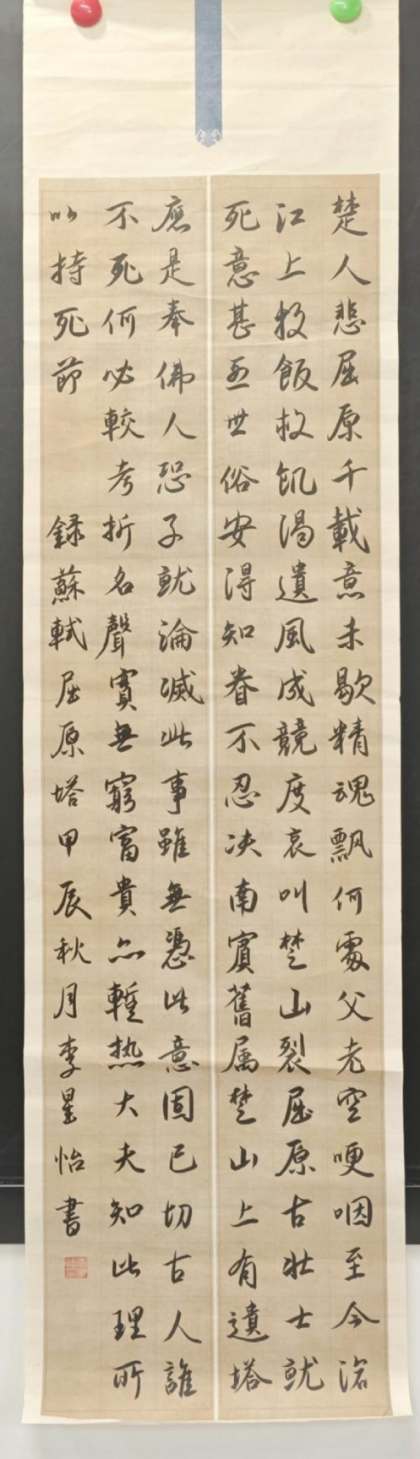 楚人悲屈原千載意未歇精魂飄何處父老空哽咽至今滄
江上投飯救飢渴遺風成競度哀叫楚山裂屈原古壯士就
死意甚世俗安得知眷不忍决南賓舊属楚山上有遺塔
應是奉佛人恐子就淪滅此事雖無憑此意固已切古人誰
不死何必較考折名聲實無窮富貴亦暫热大夫知此理所
以持死節 録蘇軾屈原塔甲辰秋月李星怡書